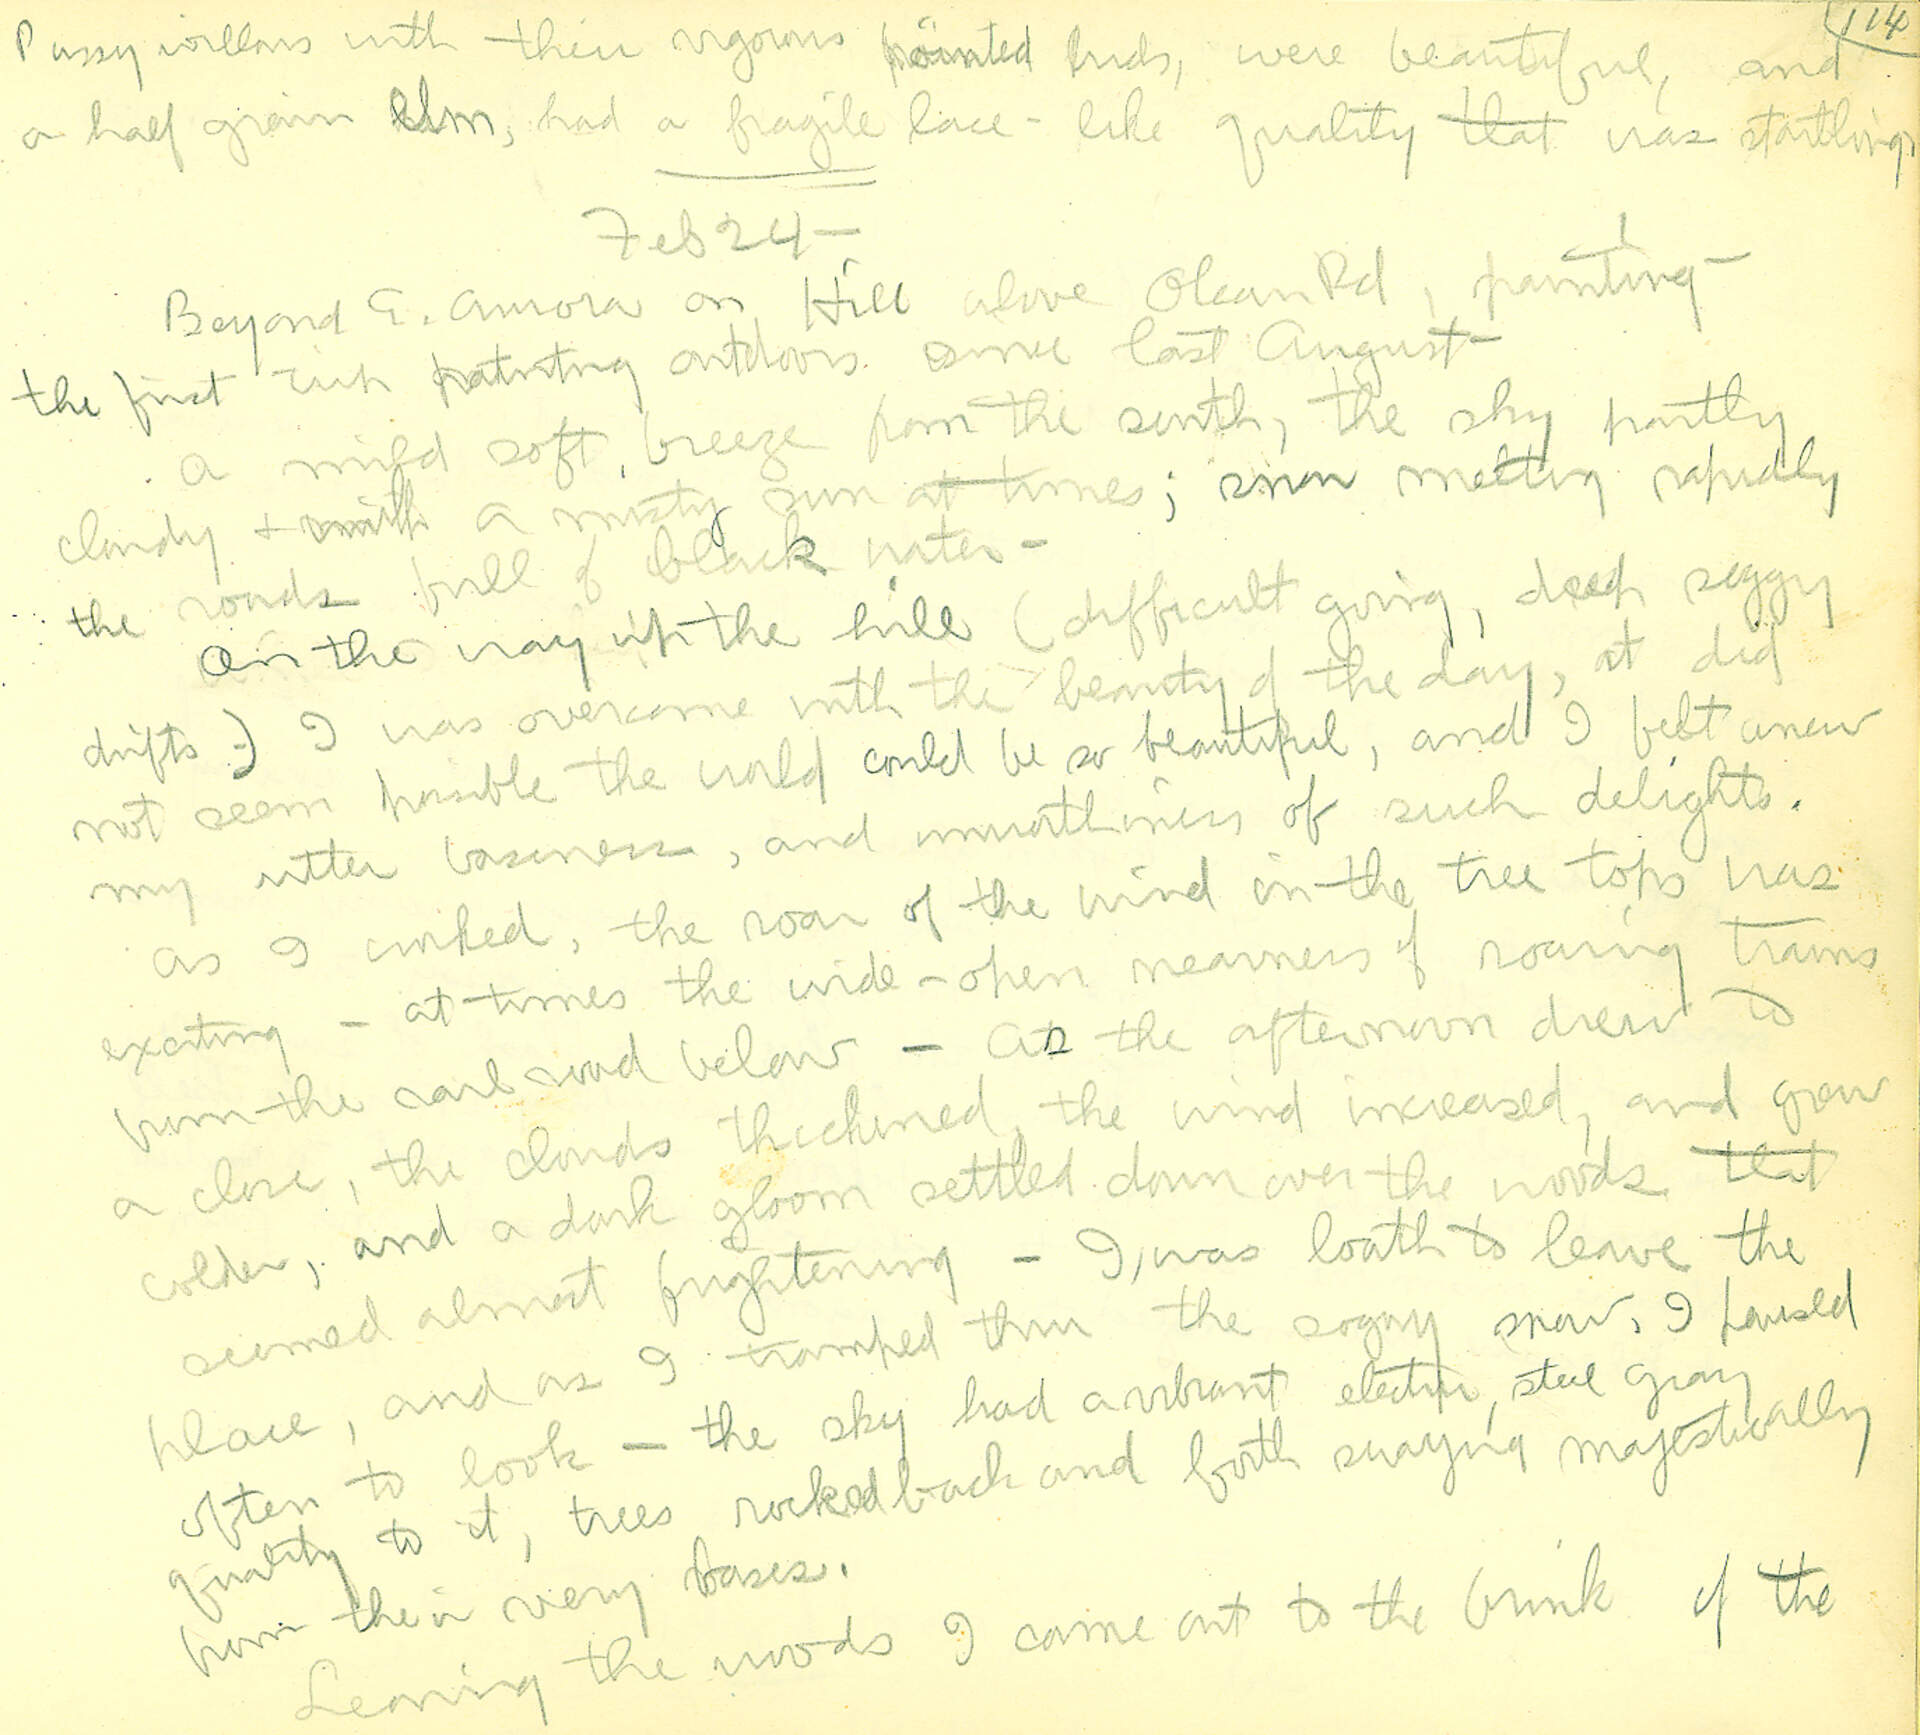 114
Pussy willows with their vigorous pointed buds, were beautiful, and
a half grown Elm, had a fragile lace-like quality that was startling.
Feb 24 -
Beyond E. Aurora on Hill above Olean Rd, painting -
the first trip painting outdoors since last August -
A mild soft, breeze from the south, the sky partly
cloudy + with a misty sun at times; snow melting rapidly
the roads full of black water -
On the way up the hill (difficult going, deep soggy
drifts -) I was overcome with the beauty of the day, it did
not seem possible the world could be so beautiful, and I felt anew
my utter baseness, and unworthiness of such delights.
As I worked, the roar of the wind in the tree tops was
exciting - at times the wide-open nearness of roaring trains
from the railroad below - As the afternoon drew to
a close, the clouds thickened, the wind increased, and grew
colder, and a dark gloom settled down over the woods that
seemed almost frightening - I was loath to leave the
place, and as I tramped thru the soggy snow, I paused
often to look - the sky had a vibrant electric, steel gray
quality to it, trees rocked back and forth swaying majestically
from their very bases.
Leaving the woods I came out to the brink of the